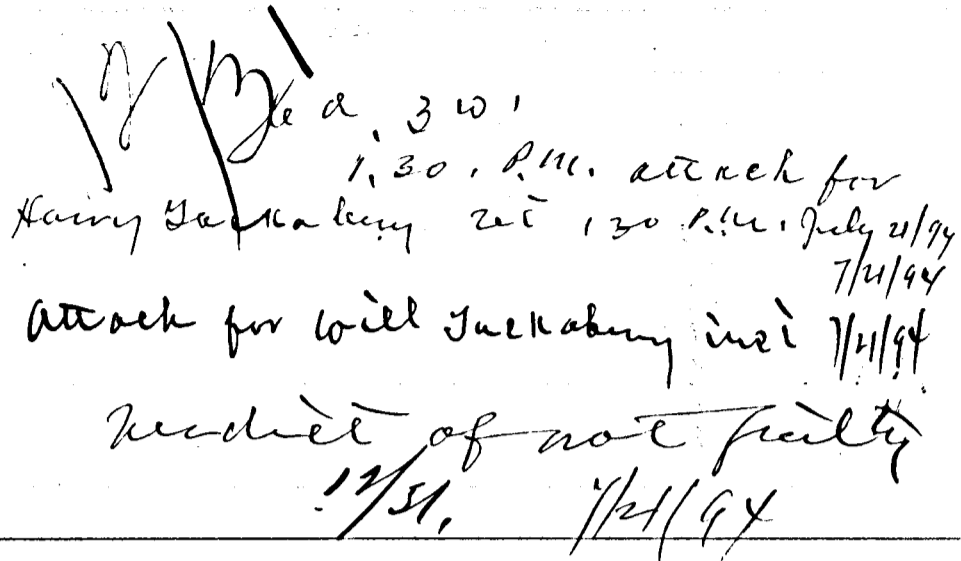 1,30, P.M. attach for
Harry Tackabury ret 1 30 P.M. July 21/94
7/21/94
Attach for Will Tackabury inst 7/21/94
Verdict of not guilty
12/31, 7/21/94